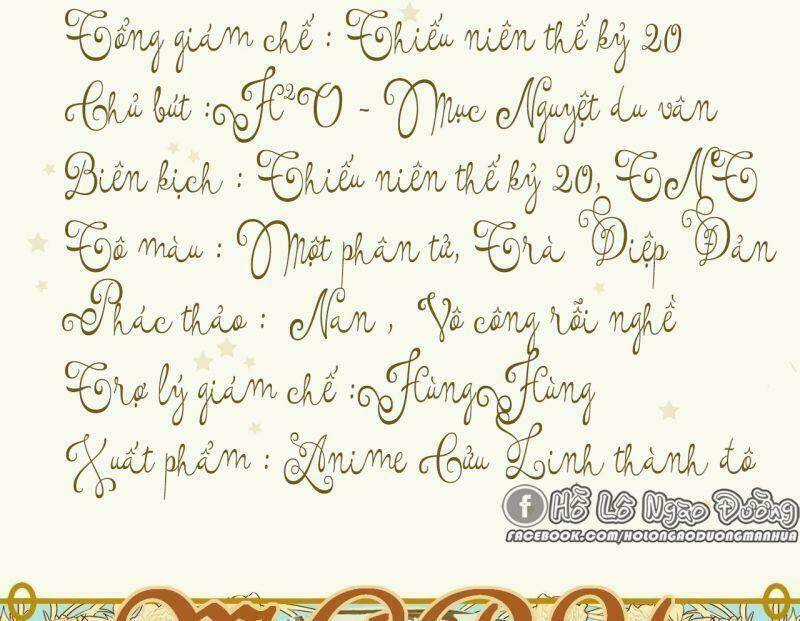 Tổng giám chế : Thiếu niên thế kỷ 20
Chủ bút : H²O - Mục Nguyệt du vân
Biên kịch : Thiếu niên thế kỷ 20, TNT
Tô màu : Một phân tử, Trà Diệp Đản
Phác thảo : Nan , Vô công rỗi nghề
Trợ lý giám chế : Hùng Hùng
Xuất phẩm : Anime Cửu Linh thành đô
f Hồ Lô Ngào Đường
FACEBOOK.COM/HOLONGAODUONGMANHUA